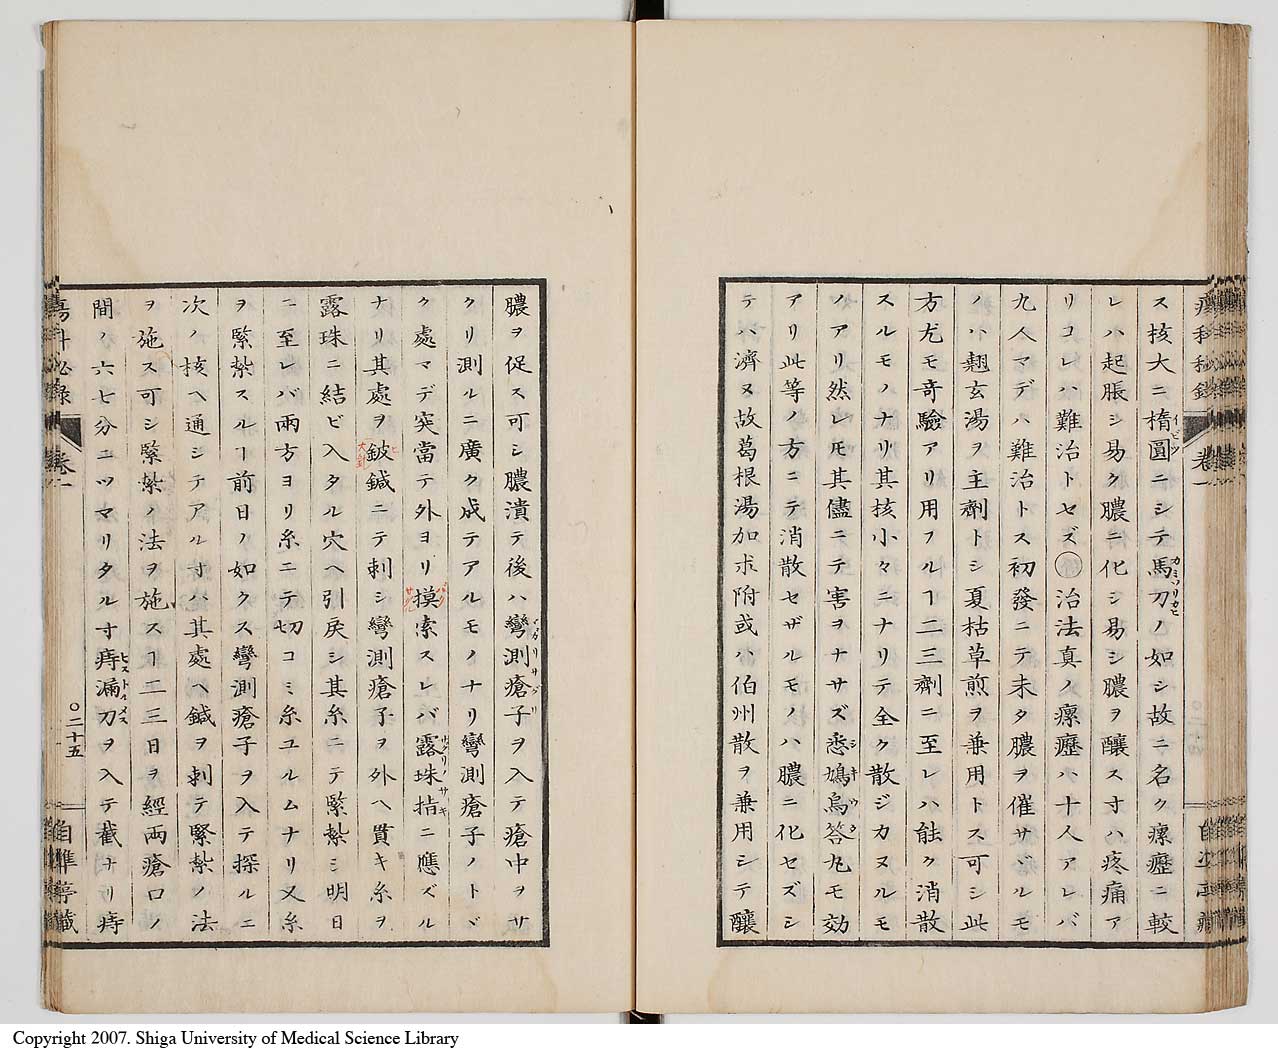 ス核大ニ楕圓ニシテ馬刀ノ如シ故ニ名ク瘰癧ニ較
レハ起脹シ易ク膿ニ化シ易シ膿ヲ釀スヿハ疼痛ア
リコレハ難治トセズ〇治法真ノ瘰癧ハ十人アレバ
九人マデハ難治トス初發ニテ未タ膿ヲ催サヾルモ
ノハ翹玄湯ヲ主劑トシ夏枯草煎ヲ兼用トス可シ此
方尤モ奇驗アリ用フルヿ二三劑ニ至レハ能ク消散
スルモノナリ其核小々ニナリテ全ク散ジカヌルモ
ノアリ然レモ其儘ニテ害ヲナサズ悉鳩烏答丸モ効
アリ此等ノ方ニテ消散セザルモノハ膿ニ化セズシ
テハ濟ヌ故葛根湯加朮附或ハ伯州散ヲ兼用シテ釀
膿ヲ促ス可シ膿潰テ後ハ彎測瘡子ヲ入テ瘡中ヲサ
クリ測ルニ廣ク成テアルモノナリ彎測瘡子ノトヾ
ク處マデ突當テ外ヨリ摸索スレバ露珠指ニ應ズル
ナリ其處ヲ鈹鍼ニテ刺シ彎測瘡子ヲ外ヘ貫キ糸ヲ
露珠ニ結ビ入タル穴ヘ引戻シ其糸ニテ緊紮シ明日
ニ至レバ兩方ヨリ糸ニテ切コミ糸ユルムナリ又糸
ヲ緊紮スルヿ前日ノ如クス彎測瘡子ヲ入テ探ルニ
次ノ核ヘ通シテアルヿハ其處ヘ鍼ヲ刺テ緊紮ノ法
ヲ施ス可シ緊紮ノ法ヲ施スヿ二三日ヲ經兩瘡口ノ
間ノ六七分ニツマリタルヿ痔漏刀ヲ入テ截ナリ痔
瘍科秘録 卷一
〇二十五
自準亭藏
Copyright 2007. Shiga University of Medical Science Library